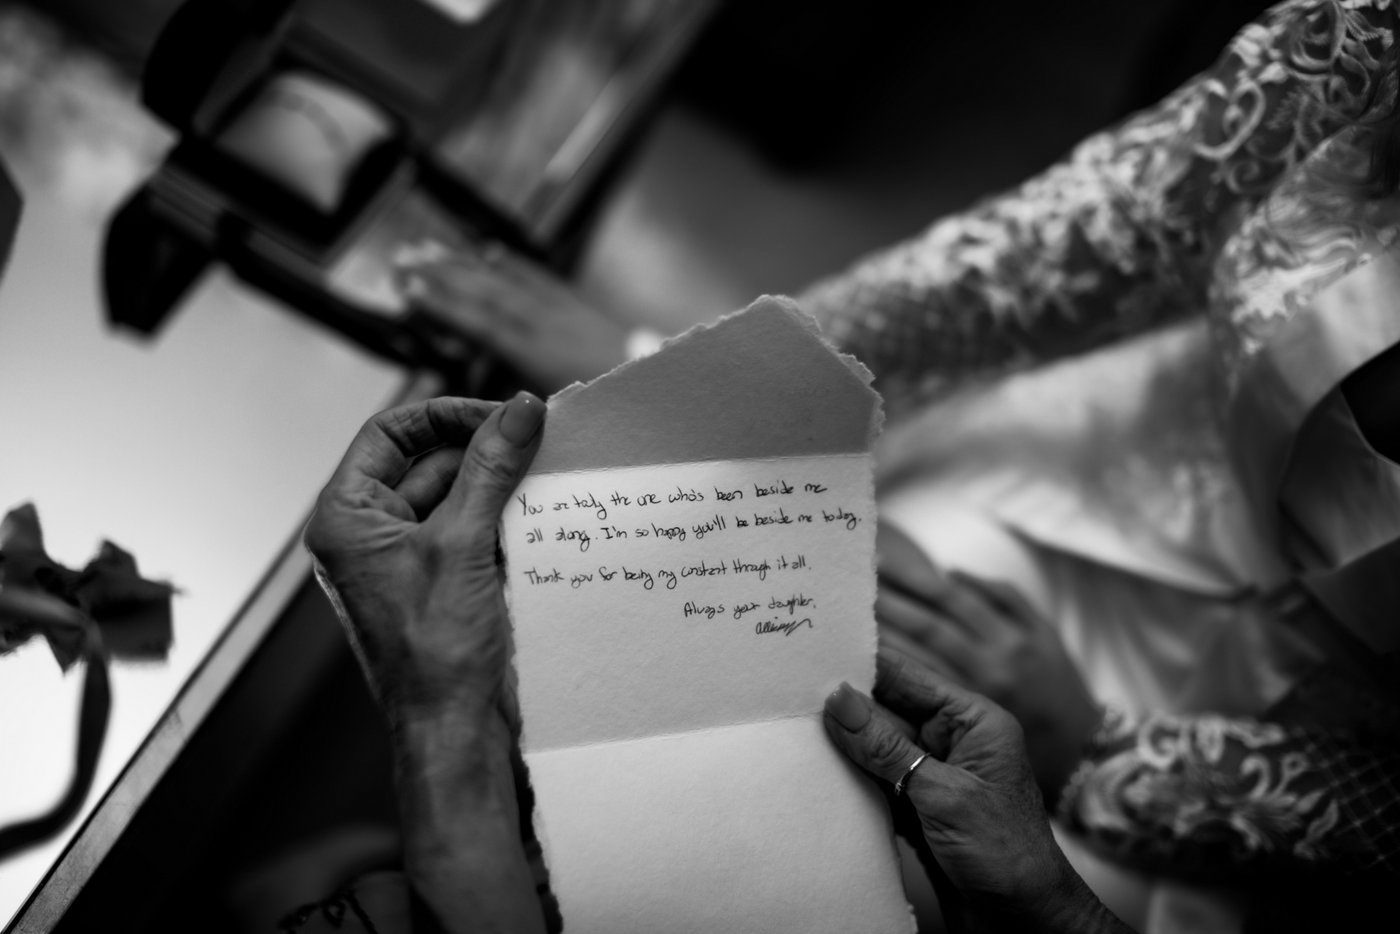 You are truly the one who's been beside me
all along. I'm so happy you'll be beside me today.
Thank you for being my constant through it all.
Always your daughter,